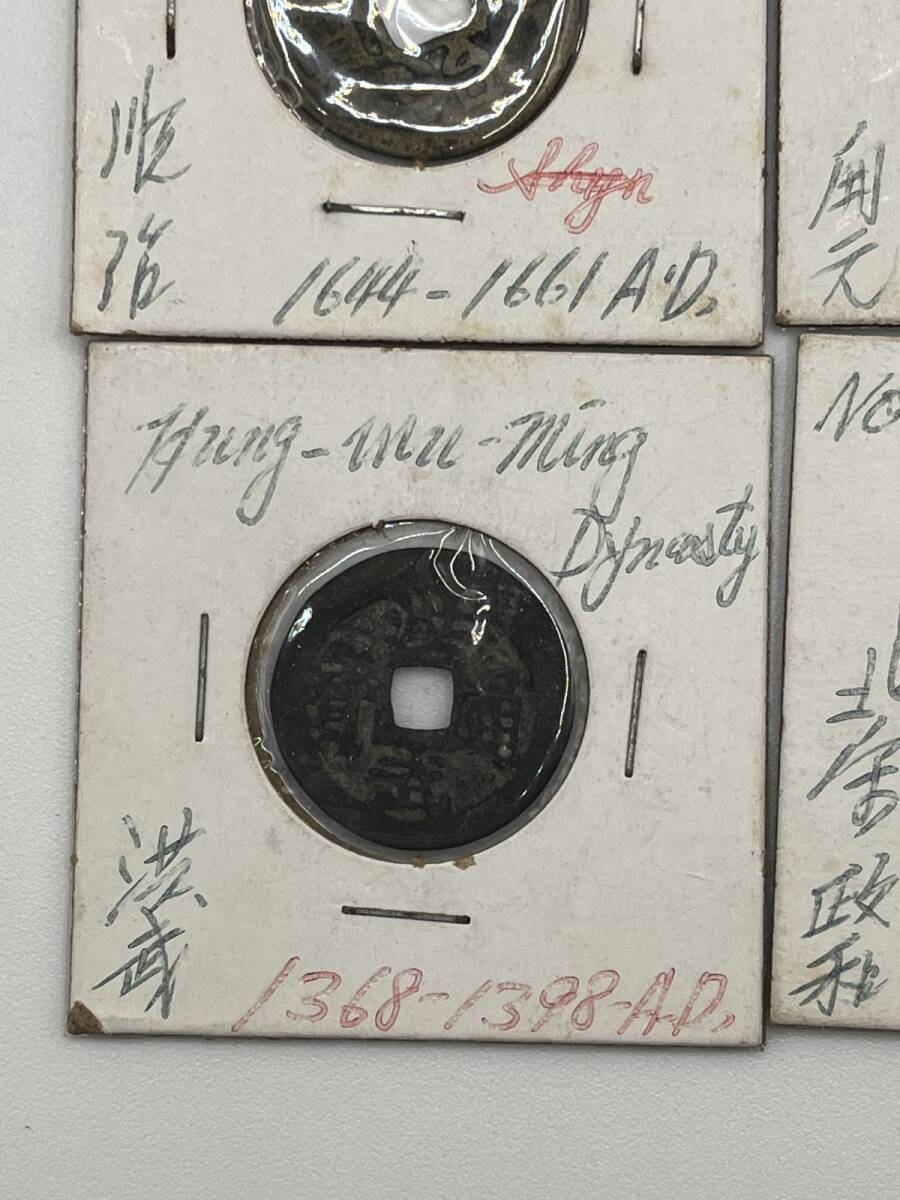 順
治
Shun
1644-1661 A.D.
開
元
Hung-Wu-Ming
Dynasty
洪
武
1368-1398-A.D.
No
北
宋
政
和